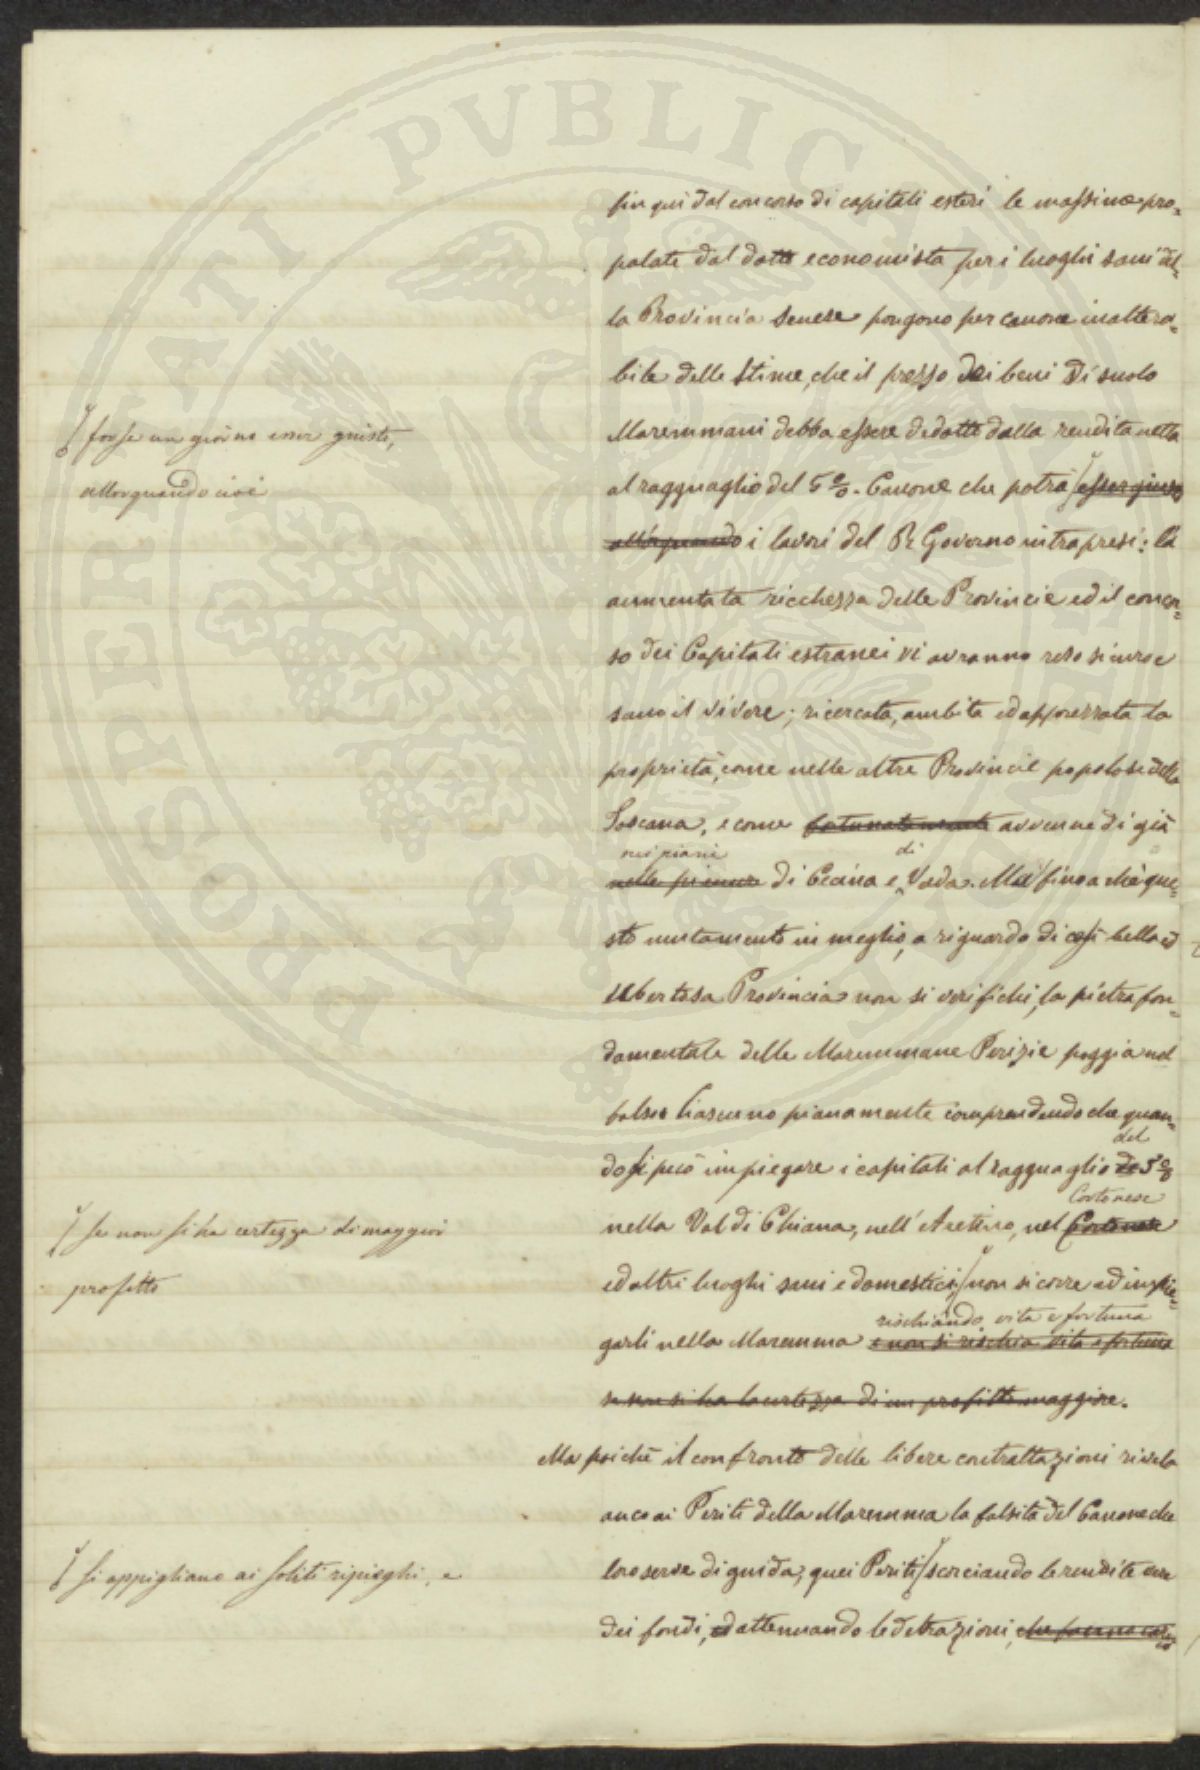 fin qui dal concorso di capitali esteri le massime pro-
palate dal dotto economista per i luoghi sani del-
la Provincia Senese pongono per canone inaltera-
bile delle stime, che il prezzo dei beni di suolo
Maremmani debba essere dedotto dalla rendita netta
al ragguaglio del 5 %. Canone che potrà esser giusto
allorquando i lavori del R. Governo intrapresi: la
aumentata ricchezza delle Provincie ed il concor-
so dei Capitali estranei vi avranno reso sicuro e
sano il vivere; ricercata, ambita ed apprezzata la
proprietà, come nelle altre Provincie popolose della
Toscana, e come fortunatamente avvenne di già
nei piani di
nelle pianure di Cecina e Vada. Ma fino a che que-
sto mutamento in meglio, a riguardo di così bella ed
ubertosa Provincia non si verifichi, la pietra fon-
damentale delle Maremmane Perizie poggia nel
falso. Ciascuno pianamente comprendendo che quan-
del
do si può impiegare i capitali al ragguaglio de 5 %
Cortonese
nella Val di Chiana, nell'Aretino, nel Cortonese
ed altri luoghi sani e domestici, non si corre ad impie-
rischiando vita e fortuna
garli nella Maremma e non si rischia vita e fortuna
se non si ha la certezza di un profitto maggiore.
Ma poichè il confronto delle libere contrattazioni rivela
anco ai Periti della Maremma la falsità del Canone che
loro serve di guida, quei Periti scorciando le rendite vere
dei fondi, ed attenuando le detrazioni, che fanno carico
forse un giorno esser giusto,
allorquando cioè
se non si ha certezza di maggior
profitto
si appigliano ai soliti ripieghi, e
PROSPERITATI PVBLICAE